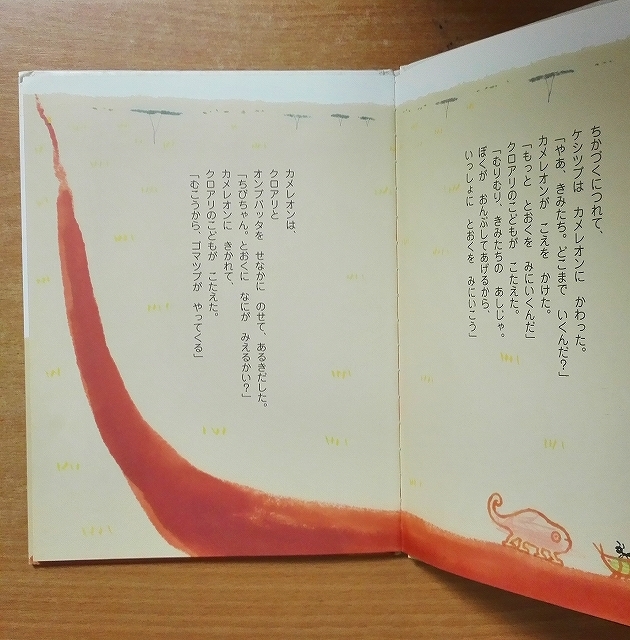 ちかづくにつれて、
ケシツブは　カメレオンに　かわった。
「やあ、きみたち。どこまで　いくんだ？」
カメレオンが　こえを　かけた。
「もっと　とおくを　みにいくんだ」
クロアリのこどもが　こたえた。
「むりむり、きみたちの　あしじゃ。
ぼくが　おんぶしてあげるから、
いっしょに　とおくを　みにいこう」
カメレオンは、
クロアリと
オンブバッタを　せなかに　のせて、あるきだした。
「ちびちゃん。とおくに　なにが　みえるかい？」
カメレオンに　きかれて、
クロアリのこどもが　こたえた。
「むこうから、ゴマツブが　やってくる」